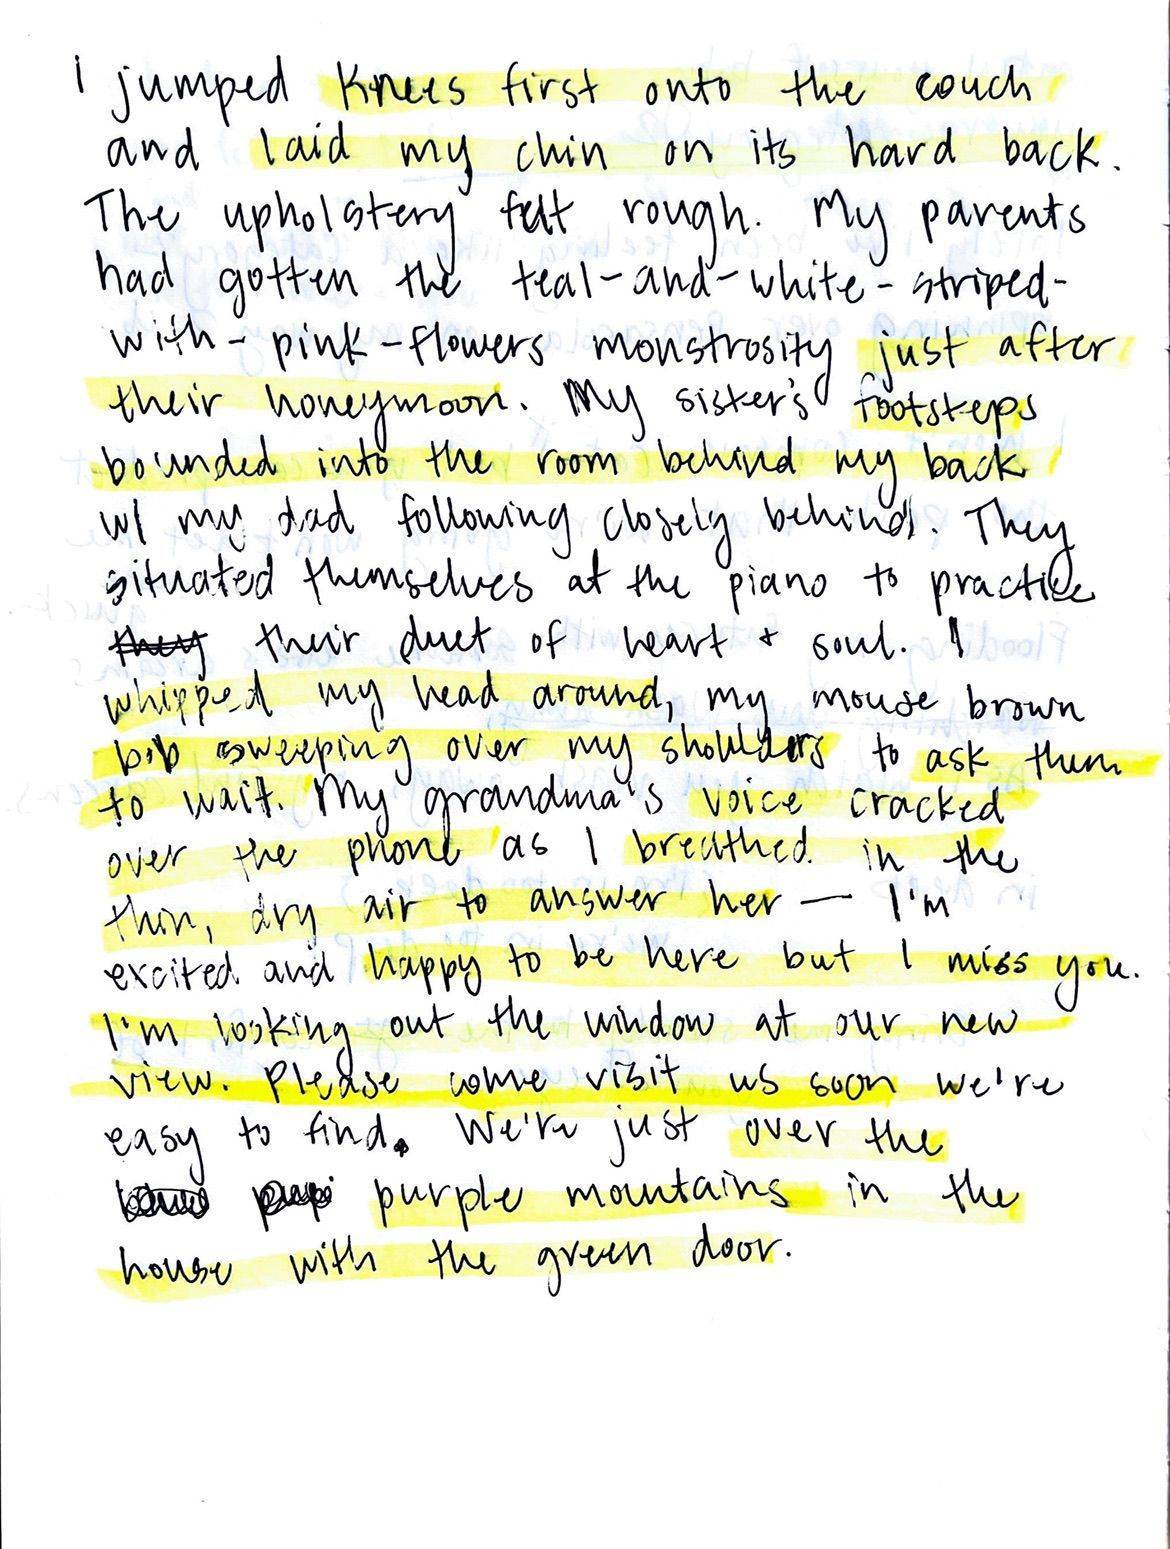 I jumped knees first onto the couch
and laid my chin on its hard back.
The upholstery felt rough. My parents
had gotten the teal-and-white-striped-
with-pink-flowers monstrosity just after
their honeymoon. My sister's footsteps
bounded into the room behind my back
w/ my dad following closely behind. They
situated themselves at the piano to practice
they their duet of heart + soul. I
whipped my head around, my mouse brown
bob sweeping over my shoulders to ask them
to wait. My grandma's voice cracked
over the phone as I breathed in the
thin, dry air to answer her — I'm
excited and happy to be here but I miss you.
I'm looking out the window at our new
view. Please come visit us soon we're
easy to find. We're just over the
purple mountains in the
house with the green door.